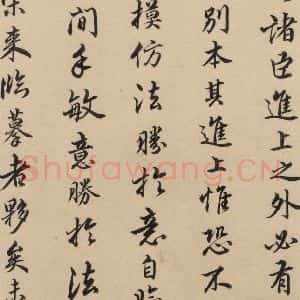 諸臣進上之外必有
別本其進上惟恐不
摸仿法勝於意自臨
間手敏意勝於法
來臨摹者夥矣未
Shufawang.CN